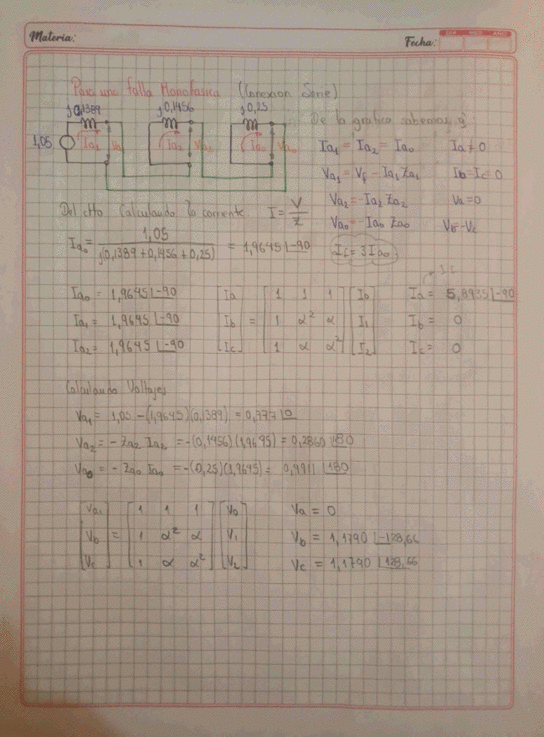 Materia:
Fecha:
DIA MES AÑO
Para una falla Monofasica (Conexion Serie)
j0,1389 j0,1456 j0,25
1,05 Ia1 Va1 Ia2 Va2 Ia0 Va0
De la grafica sabemos q'
Ia1 = Ia2 = Ia0 Ia ≠ 0
Va1 = Vf - Ia1 Za1 Ib = Ic = 0
Va2 = -Ia2 Za2 Va = 0
Va0 = -Ia0 Za0 Vb - Vc
Del ctto Calculando la corriente I = V/Z
Ia0 = 1,05 / j(0,1389 + 0,1456 + 0,25) = 1,9645 |-90 If = 3Ia0
Ia0 = 1,9645 |-90 [Ia] = [1 1 1] [I0] Ia = 5,8935 |-90
Ia1 = 1,9645 |-90 [Ib] = [1 α² α] [I1] Ib = 0
Ia2 = 1,9645 |-90 [Ic] = [1 α α²] [I2] Ic = 0
Calculando Voltajes
Va1 = 1,05 - (1,9645)(0,1389) = 0,777 |0
Va2 = - Za2 Ia2 = -(0,1456)(1,9645) = 0,2860 |180
Va0 = - Za0 Ia0 = -(0,25)(1,9645) = 0,4911 |180
[Va1] = [1 1 1] [V0] Va = 0
[Vb] = [1 α² α] [V1] Vb = 1,1790 |-128,66
[Vc] = [1 α α²] [V2] Vc = 1,1790 |128,66